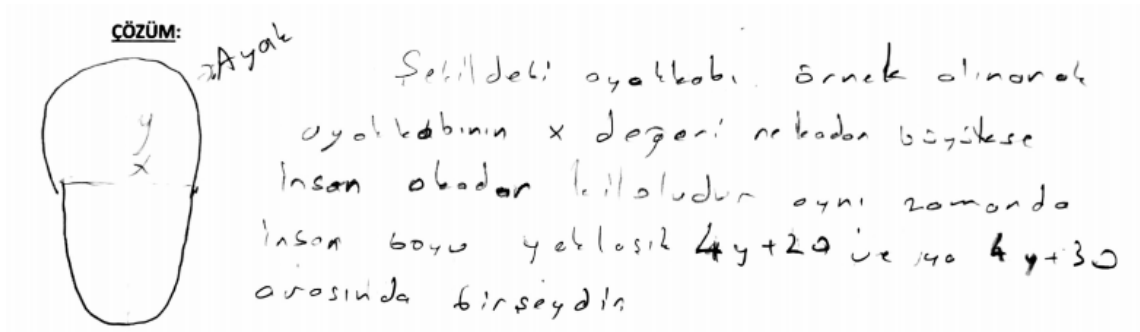 ÇÖZÜM:
Ayak
y
x
Şekildeki ayakkabı örnek alınarak
ayakkabının x değeri ne kadar büyükse
insan okadar kiloludur aynı zamanda
insan boyu yaklaşık 4y+20 veya 4y+30
arasında birşeydir